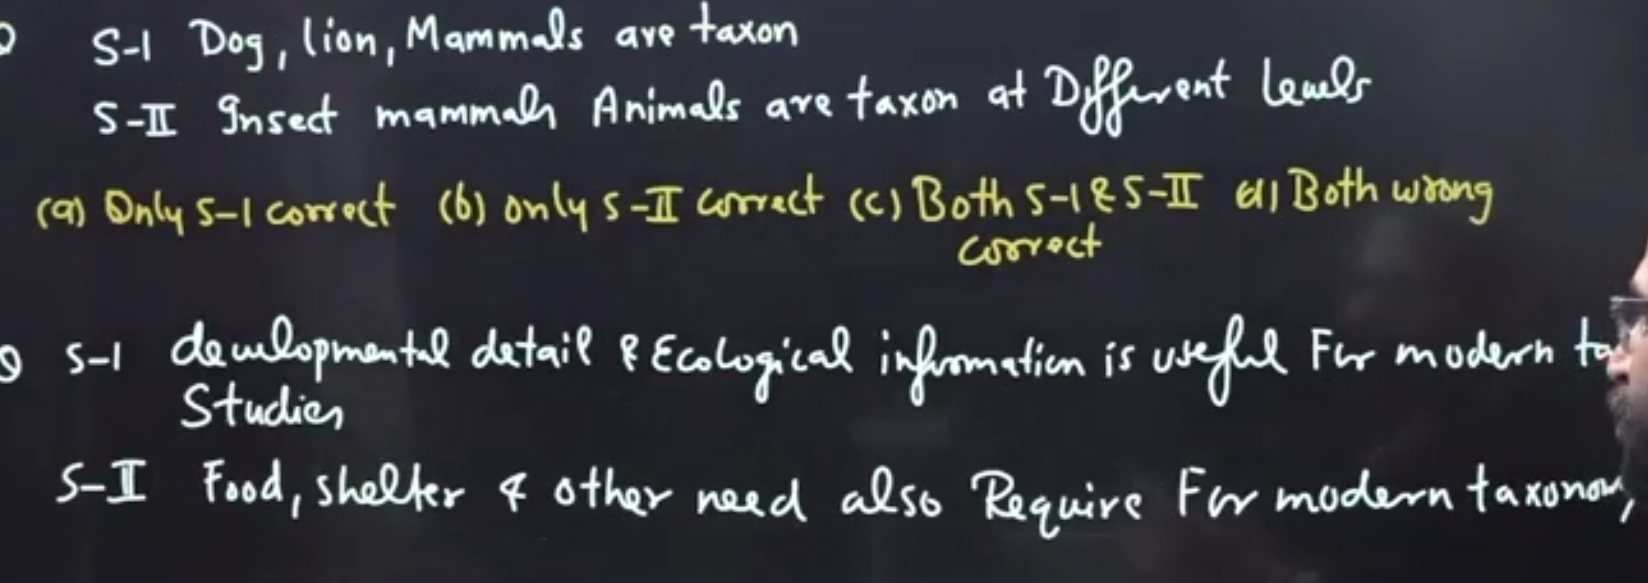 S-I Dog, lion, Mammals are taxon
S-II Insect mammals Animals are taxon at Different levels
(a) Only S-I correct (b) only S-II correct (c) Both S-I & S-II d) Both wrong
correct
Q S-I developmental detail & Ecological information is useful For modern
Studies
S-II Food, shelter & other need also Require For modern